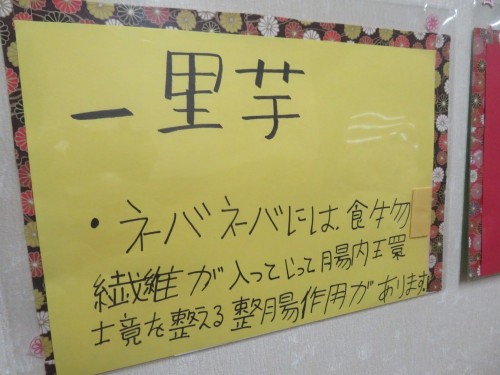 一里芋
・ネバネバには、食物
繊維が入ってじって腸内環
境を整える整腸作用があります